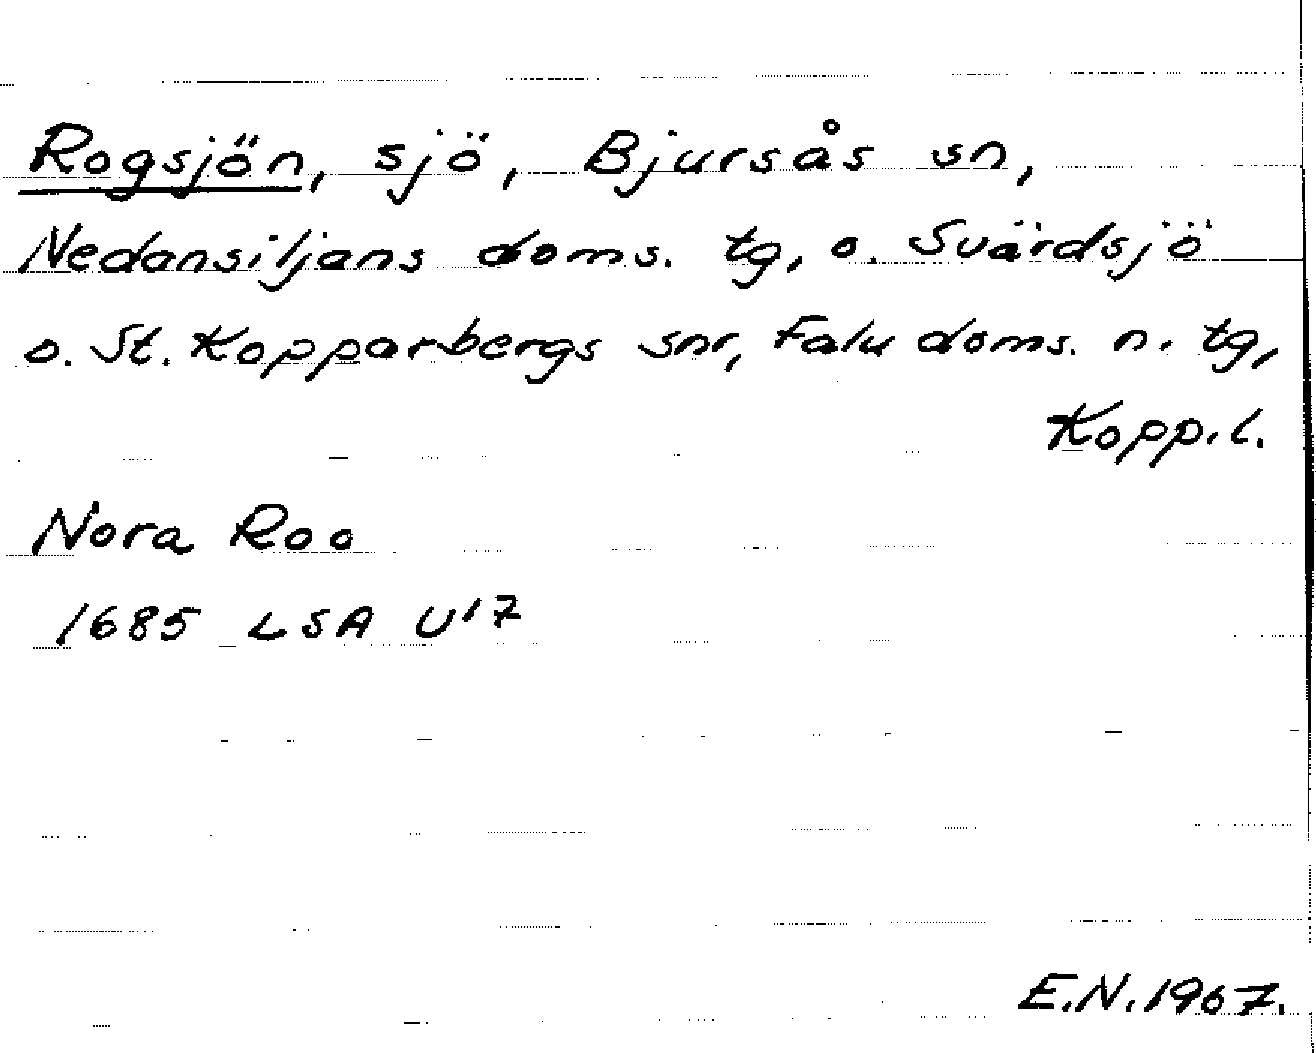 Rogsjön, sjö, Bjursås sn,
Nedansiljans doms. tg, o. Svärdsjö
o. St. Kopparbergs snr, Falu doms. n. tg,
Kopp.l.
Nora Roo
1685 LSA U17
E.N. 1967.